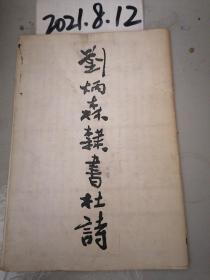 2021.8.12
劉炳森隸書杜詩